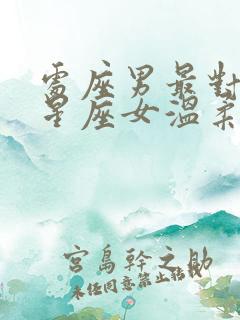 處座男最對
星座女溫柔
宮島幹之助
未经同意禁止转载